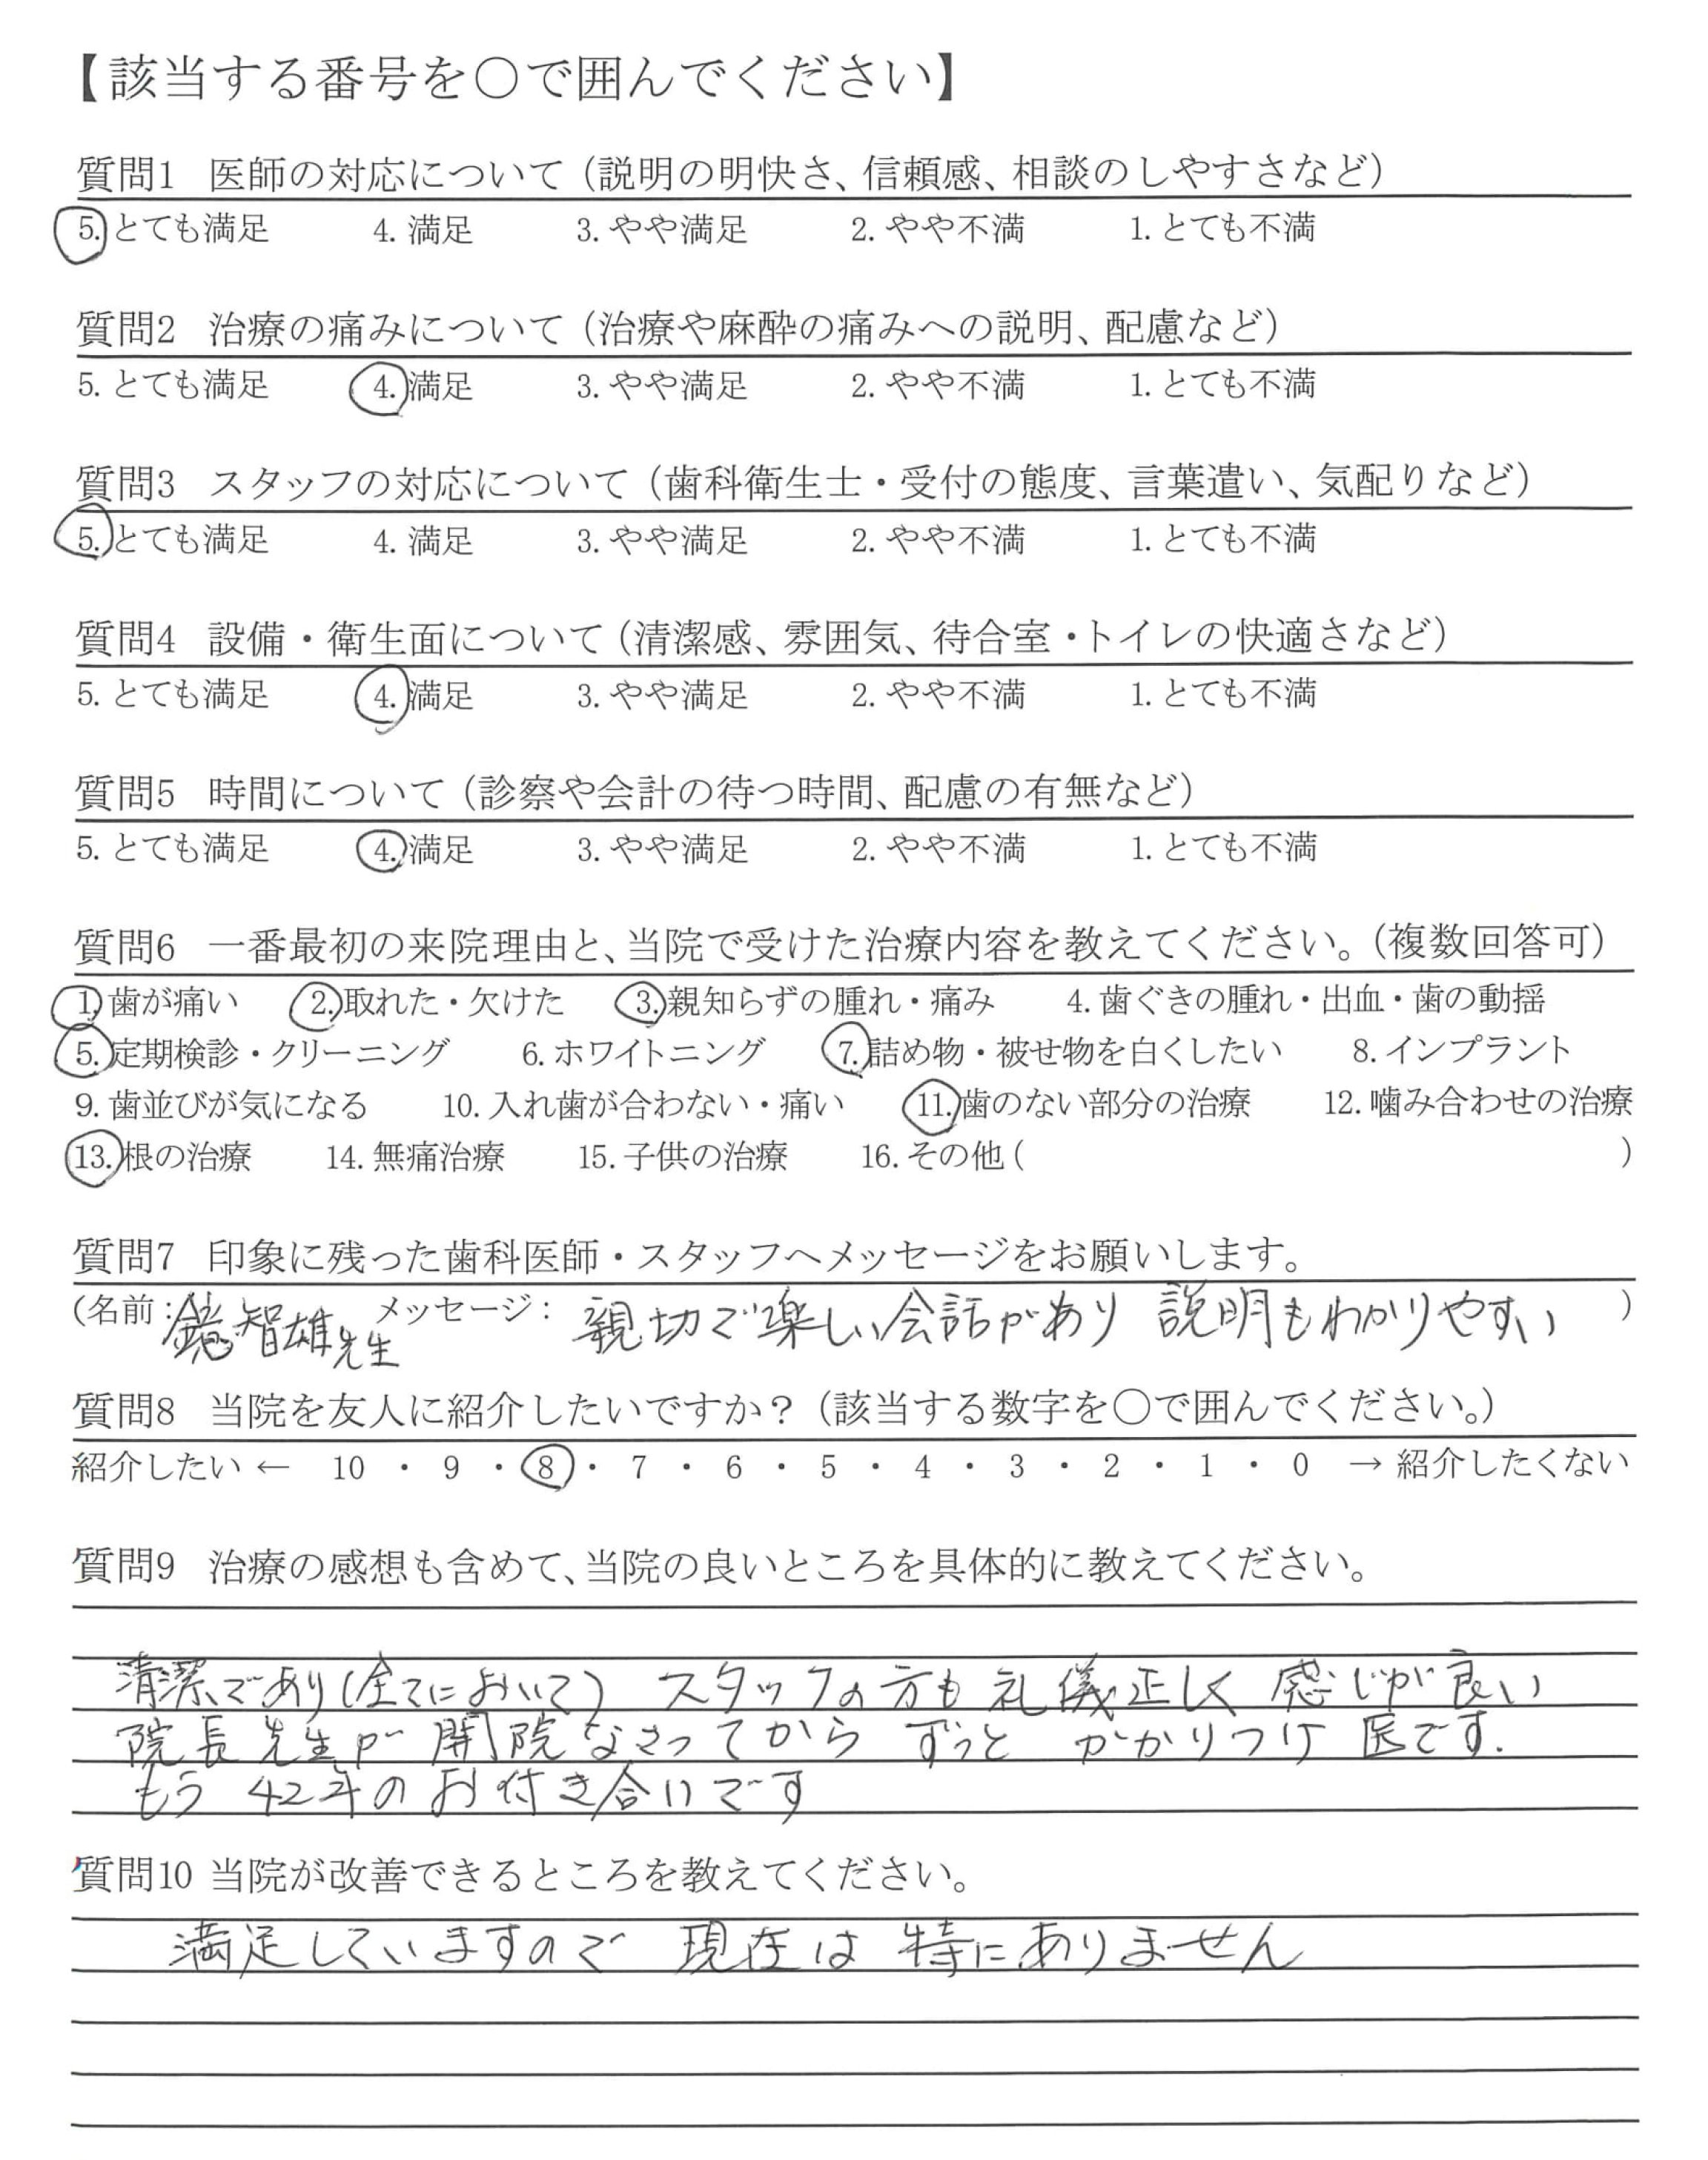 【該当する番号を○で囲んでください】
質問1 医師の対応について（説明の明快さ、信頼感、相談のしやすさなど）
5. とても満足 4. 満足 3. やや満足 2. やや不満 1. とても不満
質問2 治療の痛みについて（治療や麻酔の痛みへの説明、配慮など）
5. とても満足 4. 満足 3. やや満足 2. やや不満 1. とても不満
質問3 スタッフの対応について（歯科衛生士・受付の態度、言葉遣い、気配りなど）
5. とても満足 4. 満足 3. やや満足 2. やや不満 1. とても不満
質問4 設備・衛生面について（清潔感、雰囲気、待合室・トイレの快適さなど）
5. とても満足 4. 満足 3. やや満足 2. やや不満 1. とても不満
質問5 時間について（診察や会計の待つ時間、配慮の有無など）
5. とても満足 4. 満足 3. やや満足 2. やや不満 1. とても不満
質問6 一番最初の来院理由と、当院で受けた治療内容を教えてください。（複数回答可）
1. 歯が痛い 2. 取れた・欠けた 3. 親知らずの腫れ・痛み 4. 歯ぐきの腫れ・出血・歯の動揺
5. 定期検診・クリーニング 6. ホワイトニング 7. 詰め物・被せ物を白くしたい 8. インプラント
9. 歯並びが気になる 10. 入れ歯が合わない・痛い 11. 歯のない部分の治療 12. 噛み合わせの治療
13. 根の治療 14. 無痛治療 15. 子供の治療 16. その他（ ）
質問7 印象に残った歯科医師・スタッフへメッセージをお願いします。
（名前：智雄先生 メッセージ： 親切で楽しい会話があり 説明もわかりやすい ）
質問8 当院を友人に紹介したいですか？（該当する数字を○で囲んでください。）
紹介したい ← 10 ・ 9 ・ 8 ・ 7 ・ 6 ・ 5 ・ 4 ・ 3 ・ 2 ・ 1 ・ 0 → 紹介したくない
質問9 治療の感想も含めて、当院の良いところを具体的に教えてください。
清潔であり（全てにおいて） スタッフの方も礼儀正しく 感じが良い
院長先生が開院なさってから ずっと かかりつけ医です.
もう 42年のお付き合いです
質問10 当院が改善できるところを教えてください。
満足していますので 現在は 特にありません